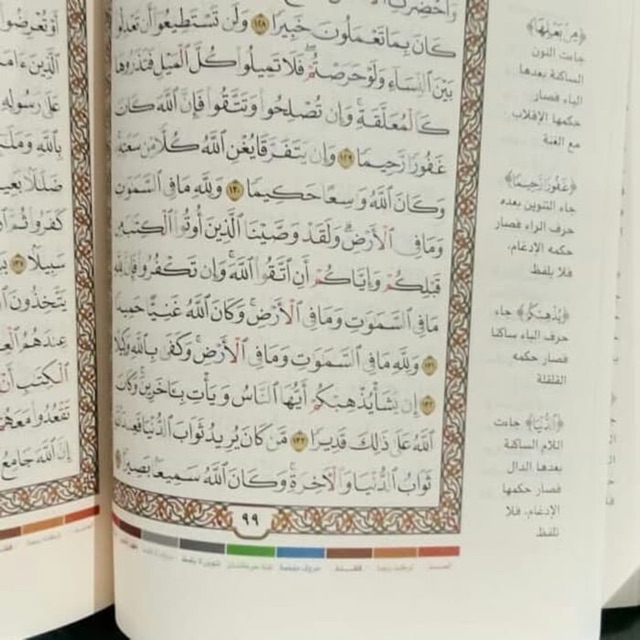 وَأُحْضِرَتِ
كَانَ بِمَا تَعْمَلُونَ خَبِيرًا ١٢٨ وَلَن تَسْتَطِيعُوٓا۟ أَن تَعْدِلُوا۟
بَيْنَ ٱلنِّسَآءِ وَلَوْ حَرَصْتُمْ فَلَا تَمِيلُوا۟ كُلَّ ٱلْمَيْلِ فَتَذَرُوهَا
كَٱلْمُعَلَّقَةِ وَإِن تُصْلِحُوا۟ وَتَتَّقُوا۟ فَإِنَّ ٱللَّهَ كَانَ
غَفُورًا رَّحِيمًا ١٢٩ وَإِن يَتَفَرَّقَا يُغْنِ ٱللَّهُ كُلًّا مِّن سَعَتِهِۦ
وَكَانَ ٱللَّهُ وَٰسِعًا حَكِيمًا ١٣٠ وَلِلَّهِ مَا فِى ٱلسَّمَٰوَٰتِ
وَمَا فِى ٱلْأَرْضِ وَلَقَدْ وَصَّيْنَا ٱلَّذِينَ أُوتُوا۟ ٱلْكِتَٰبَ مِن
قَبْلِكُمْ وَإِيَّاكُمْ أَنِ ٱتَّقُوا۟ ٱللَّهَ وَإِن تَكْفُرُوا۟ فَإِنَّ لِلَّهِ
مَا فِى ٱلسَّمَٰوَٰتِ وَمَا فِى ٱلْأَرْضِ وَكَانَ ٱللَّهُ غَنِيًّا حَمِيدًا
١٣١ وَلِلَّهِ مَا فِى ٱلسَّمَٰوَٰتِ وَمَا فِى ٱلْأَرْضِ وَكَفَىٰ بِٱللَّهِ وَكِيلًا
١٣٢ إِن يَشَأْ يُذْهِبْكُمْ أَيُّهَا ٱلنَّاسُ وَيَأْتِ بِـَٔاخَرِينَ وَكَانَ
ٱللَّهُ عَلَىٰ ذَٰلِكَ قَدِيرًا ١٣٣ مَّن كَانَ يُرِيدُ ثَوَابَ ٱلدُّنْيَا فَعِندَ ٱللَّهِ
ثَوَابُ ٱلدُّنْيَا وَٱلْـَٔاخِرَةِ وَكَانَ ٱللَّهُ سَمِيعًۢا بَصِيرًا
٩٩
﴿مِنۢ بَعْلِهَا﴾
جاءت النون
الساكنة بعدها
الباء فصار
حكمها الإقلاب
مع الغنة
﴿غَفُورًا رَّحِيمًا﴾
جاء التنوين بعده
حرف الراء فصار
حكمه الإدغام،
فلا يلفظ
﴿يُذْهِبْكُمْ﴾ جاء
حرف الباء ساكنا
فصار حكمه
القلقلة
﴿ٱلدُّنْيَا﴾ جاءت
اللام الساكنة
بعدها الدال
فصار حكمها
الإدغام، فلا
تلفظ
أَوْ تُعْرِضُوا۟
ٱلَّذِينَ ءَامَنُوا۟
عَلَىٰ رَسُولِهِ
بِٱللَّهِ وَمَلَٰٓئِكَتِهِ
ضَلَٰلًۢا بَعِيدًا
كَفَرُوا۟ ثُمَّ
سَبِيلًا
يَتَّخِذُونَ
عِندَهُمُ
ٱلْكِتَٰبِ أَنْ
تَقْعُدُوا۟ مَعَهُمْ
إِنَّ ٱللَّهَ جَامِعُ